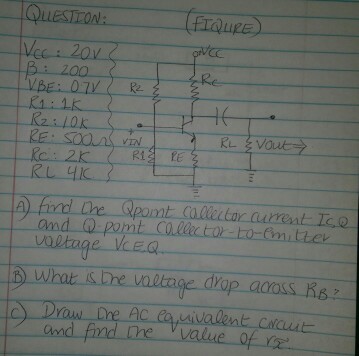 QUESTION: (FIQURE)
VCC: 20V
β: 200
VBE: 0.7V
R1: 1K
R2: 10K
RE: 500Ω
RC: 2K
RL 4K
+VCC
R2 RC
+
VIN RL Vout→
R1 RE
A) find the Qpoint collector current IC,Q
and Q point collector-to-emitter
voltage VCEQ.
B) What is the voltage drop across RB?
C) Draw the AC equivalent circuit
and find the value of rπ.